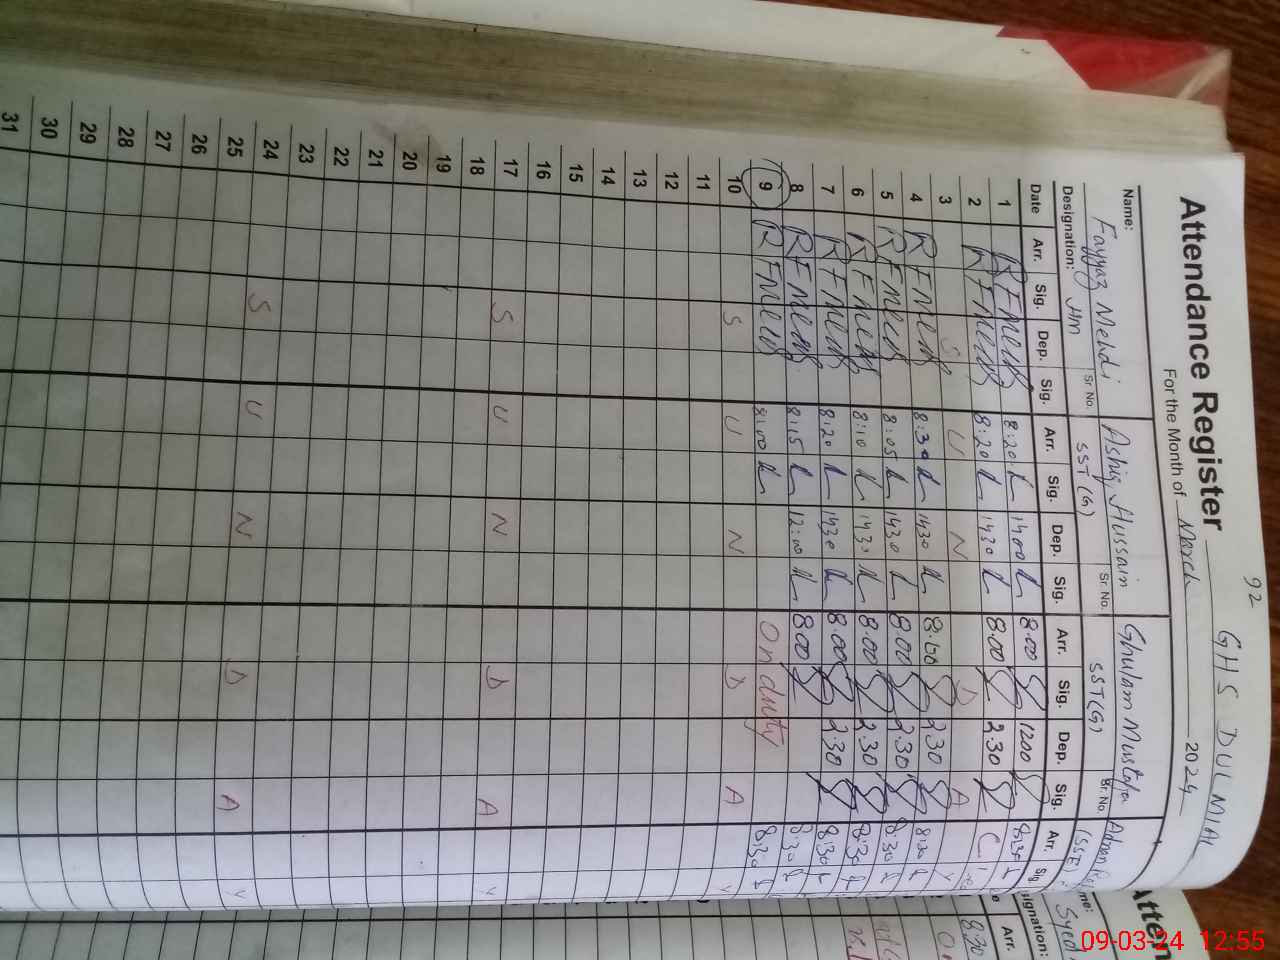 92
GHS DULMIAL
Attendance Register
For the Month of March 2024
Name: Fayyaz Mehdi Ashiq Hussain Ghulam Mustafa Adnan
Designation: HM Sr No. SST (G) Sr. No. SST (G) Sr. No. (SSE)
Date Arr. Sig. Dep. Sig. Arr. Sig. Dep. Sig. Arr. Sig. Dep. Sig. Arr. Sig.
1 RFMehdi 8:20 1400 8.00 1200 8:30
2 RFMehdi 8:20 1430 8.00 2.30 C
3 S U N D A Y
4 RFMehdi 8:30 1430 8.00 2.30 8:30
5 RFMehdi 8:05 1430 8.00 2.30 8:30
6 RFMehdi 8:10 1430 8.00 2.30 8:30
7 RFMehdi 8:20 1430 8.00 2.30 8:30
8 RFMehdi 8:15 12:00 8.00 8:30
9 RFMehdi 8:00 On duty 8:30
10 S U N D A Y
11
12
13
14
15
16
17 S U N D A
18
19
20
21
22
23
24 S U N D A Y
25
26
27
28
29
30
31
Atten
me: Syed
signation:
Arr.
8:30
09-03-24 12:55